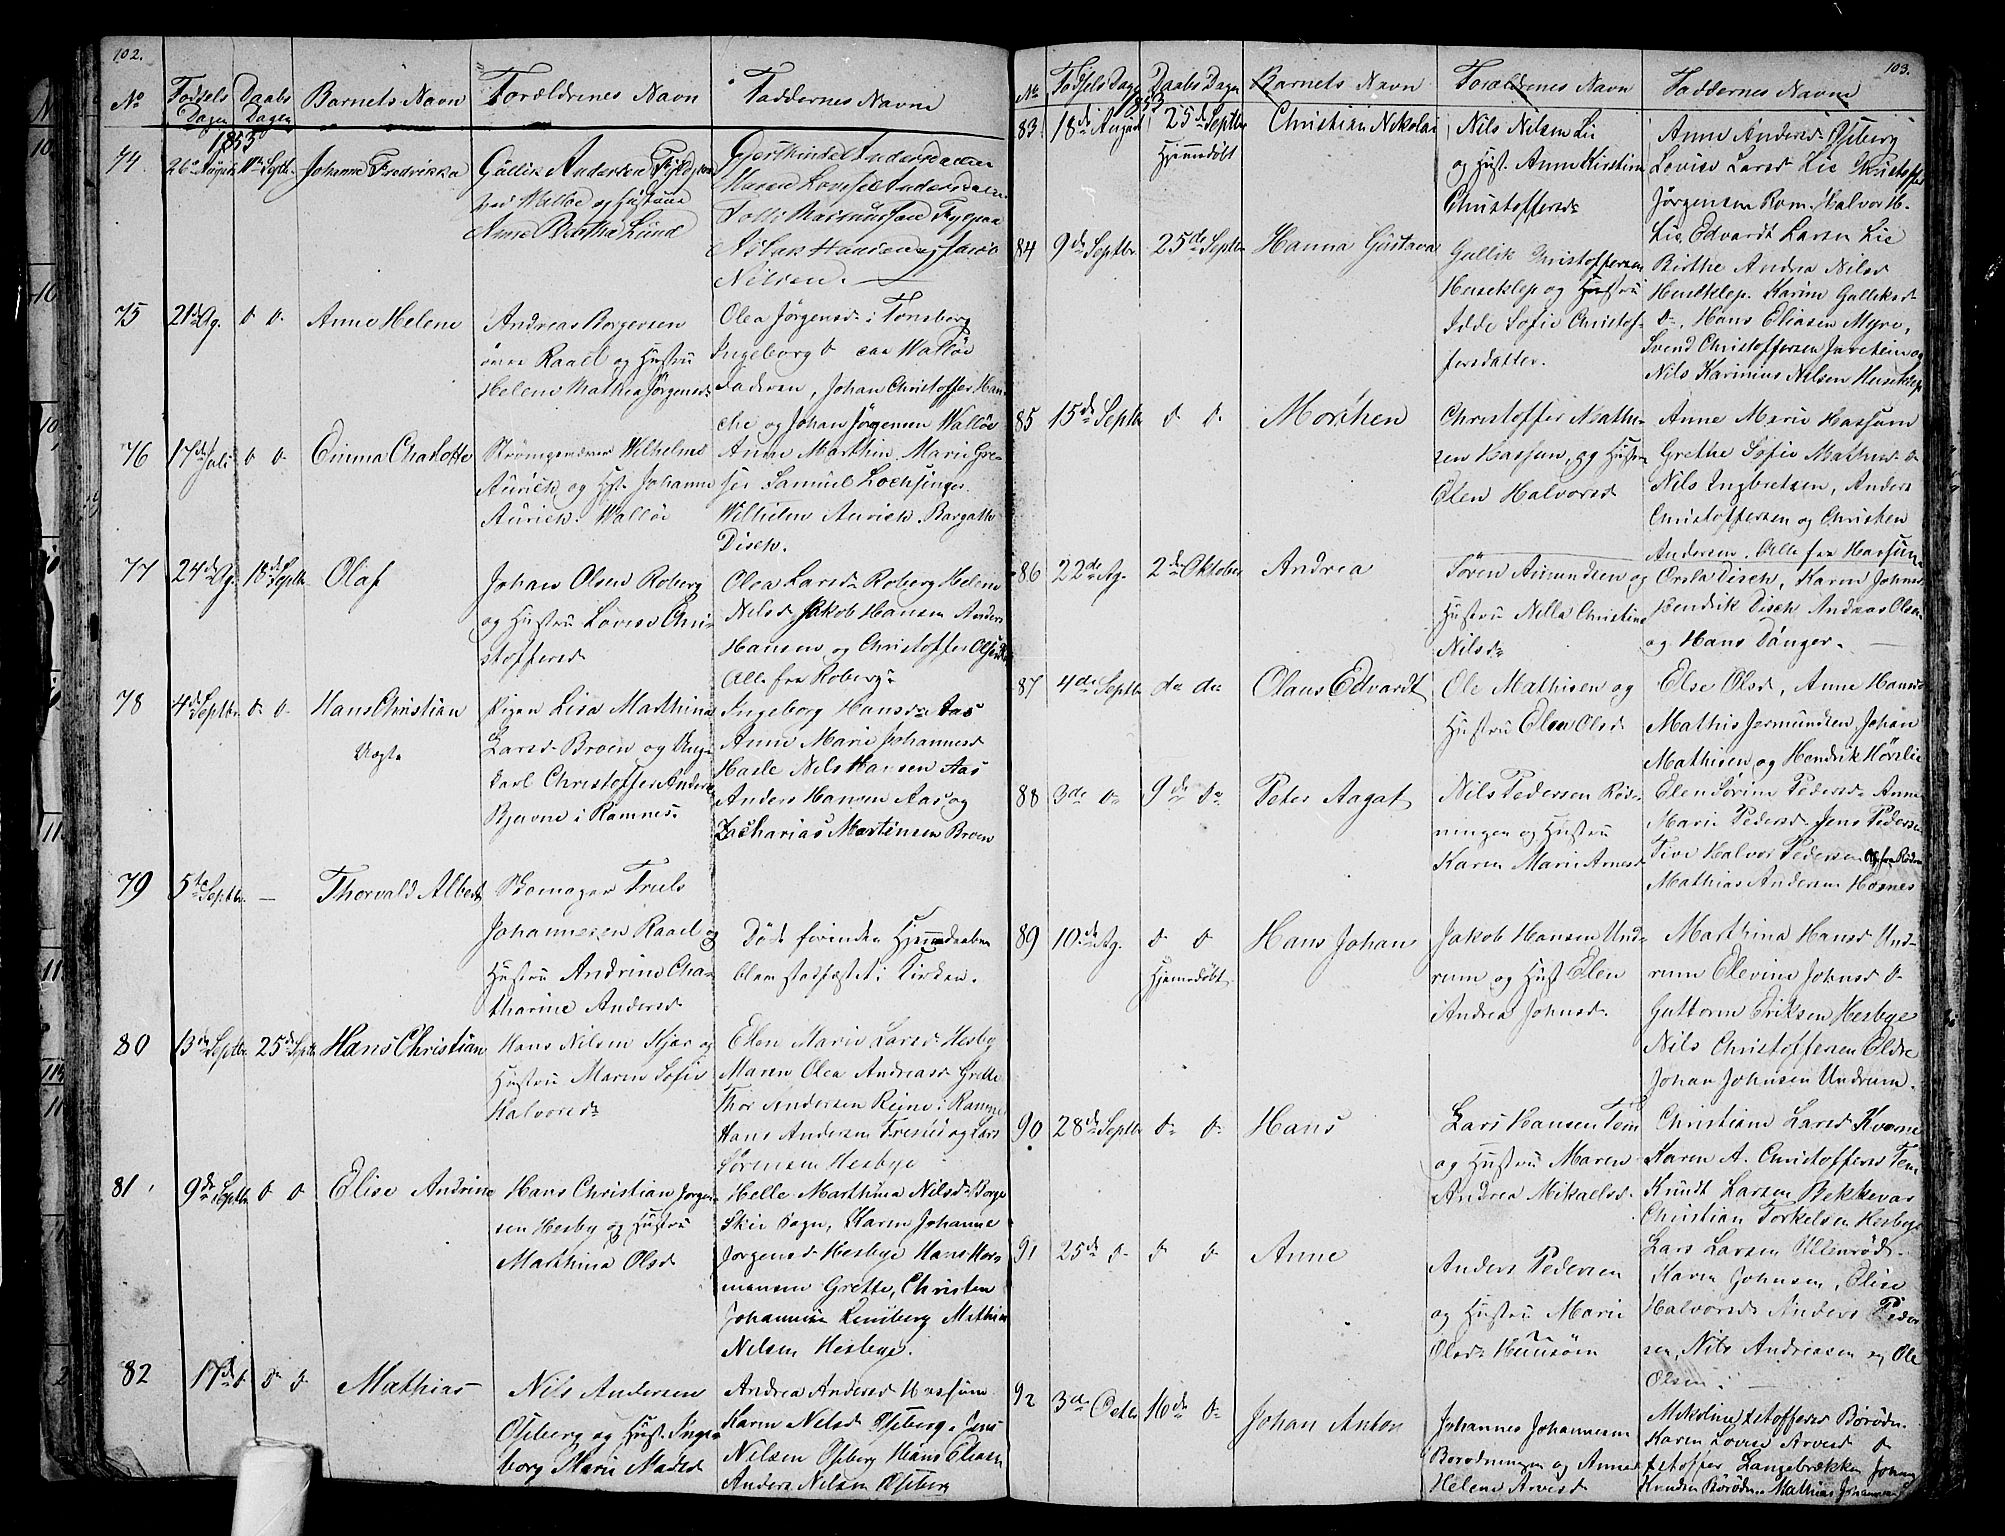 102.
No
Fødsels Dagen
Daabs Dagen
Barnets Navn
Forældrenes Navn
Faddernes Navne
1853
74.
Septbr.
Johanne Fredrikka
Gullik Andersen
ved Walløe og Hustrue
Anne Birthe Lund
Nilsen.
75
21de Ag.
d d
Anne Helene
Andreas Borgersen
øvre Raael og Hustru
Helene Mathea Jørgensd.
Olea Jørgensd. i Tønsberg
Ingeborg d paa Walløe
Faderen, Johan Christoffer Han-
che og Johan Jørgensen Walløe
76
17de Juli
d d
Emma Charlotte
Wilhelms
Aurich og Hst. Johanne
Aurich. Walløe
Anne Marthin, Marie Gre-
Samuel
Wilhelm Aurich
Disch.
77
24de Ag.
18de Septbr.
Olaf
Johan Olsen Roberg
og Hustru Lovise Chri-
stoffersd.
Olea Larsd. Roberg Helene
Nilsd. Jakob Hansen Anders
Hansen og Christoffer Olsen
Alle fra Roberg.
78
4de Septbr.
d. d.
Hans Christian
Uægte
Pigen Lisa Marthina
Larsd. Broen og Ung-
karl Christoffer Anders.
Bjerne i Ramnes.
Ingeborg Hansd. Aas
Anne Marie Johannesd
Hasle Nils Hansen Aas
Anders Hansen Aas og
Zacharias Martinsen Broen
79
5te Septbr.
—
Thorvald Albert
Skomager Truls
Johannesen Raael og
Hustru Andrine Cha-
tharine Andersd.
Døde forinden Hjemmedaaben
blev stadfæstet i Kirken.
80
13de Septbr.
25de Septbr.
Hans Christian
Hans Nilsen Kjær og
Hustru Maren Sofie
Halvorsd.
Elen Marie Larsd Hesby
Maren Olea Andreasd. Grette
Thor Andersen Reine i Ramnes
Hans Andersen og Lars
Sørensen Hesbye
81
9de Septbr.
d d
Elise Andrine
Hans Christian Jørgen-
sen Hesby og Hustru
Marthina Olsd.
Helle Marthina Nilsd. Borge
Skie Sogn, Karen Johanne
Jørgensd. Hesbye Hans Her-
mansen Grette, Christen
Johannesen Mathias
Nilsen Hesbye.
82
17de d
d d
Mathias
Nils Andersen
Oseberg og Hust. Inge-
borg Marie Madsd.
Andrea Andersd. Hassum
Karen Nilsd. Oseberg. Jens
Nilsen Oseberg Hans Eliasen
Anders Nilsen Oseberg
103.
No
Fødsels Dagen
Daabs Dagen
Barnets Navn
Forældrenes Navn
Faddernes Navne
1853
83.
18de August
25de Septbr
Hjemmedøbt
Christian Nikolai
Nils Nilsen Lie
og Hust. Anne Kirstine
Christoffersd.
Anne Andersd. Oseberg
Lovise Larsd Lie Christoffer
Jørgensen Rom. Halvor H.
Lie, Edvardt Larsen Lie
84
9de Septbr.
25de Septbr
Hanna Gustava
Gullik Christoffersen
Huseklep og Hustru
Idde Sofie Christof-
fersdatter.
Birthe Andrea Nilsd
Huseklep. Karine Galliksd
d. Hans Eliasen Myre,
Svend Christoffersen Jareteien og
Nils Karinius Nilsen Huseklep
85
15de Septbr
d d
Morthen
Christoffer Mathi-
sen Hassum, og Hustru
Elen Halvorsd
Anne Marie Hassum
Grethe Sofie Mathisd. d
Nils Ingbretsen, Anders
Christoffersen og Christen
Andersen. Alle fra Hassum.
86
22de Ag.
2de Oktober
Andrea
Søren Amundsen og
Hustru Nilla Christine
Nilsd.
Orsla Disch, Karen Johnsd
Hendrik Disch Andreas Olsen
og Hans Danger.
87
4de Septbr
do do
Olaus Edvardt
Ole Mathisen og
Hustru Elen Olsd.
Else Olsd, Anne Hansd
Mathis Jermundsen, Johan
Mathisen og Hendrik Hørslie
88
3de d
9de do
Peter Aagat
Nils Pedersen Rød-
ningen og Hustru
Karen Marie Arnesd.
Elen Sørine Pedersd. Anne
Marie Pedersd. Jens Pedersen
Halvor Pedersen
Mathias Andersen Horsnes
89
10de Ag.
d d
Hjemmedøbt.
Hans Johan
Jakob Hansen Und-
rum og Hust Elen
Andrea Johnsd.
Marthina Hansd Und-
rum Elevine Johnsd d
Guttorm Eriksen Hesbye
Nils Christoffersen Eldre
Johan Johnsen Undrum.
90
28de Septbr
d d
Hans
Lars Hansen Tem
og Hustru Maren
Andrea Mikaelsd.
Christiane Larsd Kverne
Karen A. Christoffersd Tem
Knudt Larsen Bekkevar
Christian Torkelsen Hesbye
Lars Larsen Ullenrød.
91
25de d
d d
Anne
Anders Pedersen
og Hustru Marie
Olsd.
Karen Johnsen, Elise
Halvorsd. Anders Peder-
sen, Nils Andreasen og Ole
Olsen.
92
3de Octbr
16de d
Johan Anton
Johannes Johannesen
Borødningen og Anne
Helene Arvesd
Karen Lovise Arvesd d
Langebrække Johan
Knudsen Borødn. Mathias Johannesen